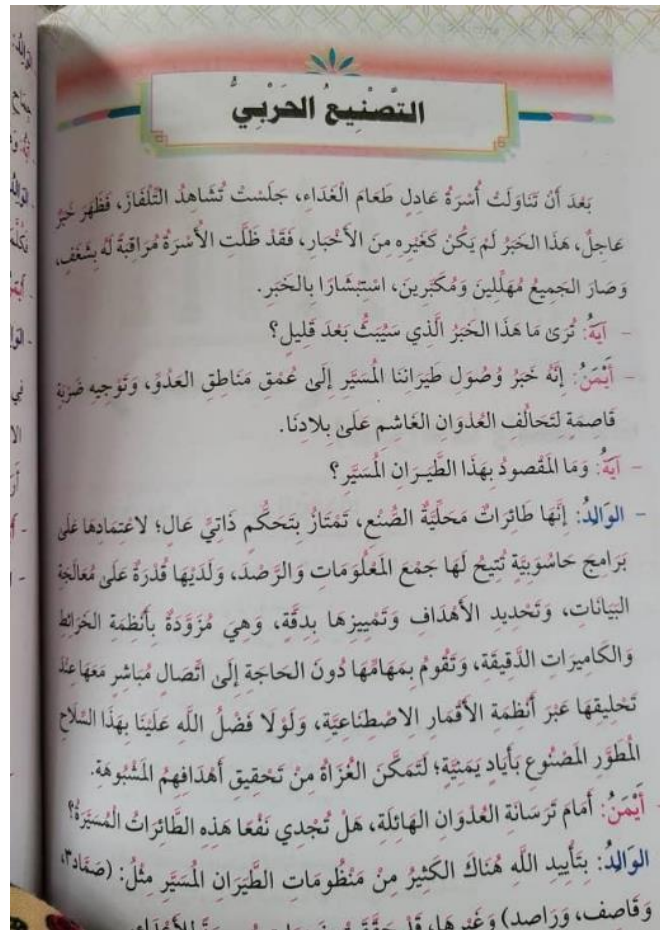 التَّصْنِيعُ الحَرْبِيُّ
بَعْدَ أَنْ تَنَاوَلَتْ أُسْرَةُ عَادِلٍ طَعَامَ الْغَدَاءِ، جَلَسَتْ تُشَاهِدُ التِّلْفَازَ، فَظَهَرَ خَبَرٌ
عَاجِلٌ، هَذَا الخَبَرُ لَمْ يَكُنْ كَغَيْرِهِ مِنَ الأَخْبَارِ، فَقَدْ ظَلَّتِ الأُسْرَةُ مُرَاقِبَةً لَهُ بِشَغَفٍ،
وَصَارَ الجَمِيعُ مُهَلِّلِينَ وَمُكَبِّرِينَ، اسْتِبْشَارًا بِالخَبَرِ.
- آيَةُ: تُرَىٰ مَا هَذَا الخَبَرُ الَّذِي سَيُبَثُّ بَعْدَ قَلِيلٍ؟
- أَيْمَنُ: إِنَّهُ خَبَرُ وُصُولِ طَيَرَانِنَا المُسَيَّرِ إِلَىٰ عُمْقِ مَنَاطِقِ العَدُوِّ، وَتَوْجِيهِ ضَرْبَةٍ
قَاصِمَةٍ لِتَحَالُفِ العُدْوَانِ الغَاشِمِ عَلَىٰ بِلَادِنَا.
- آيَةُ: وَمَا المَقْصُودُ بِهَذَا الطَّيَرَانِ المُسَيَّرِ؟
- الوَالِدُ: إِنَّهَا طَائِرَاتٌ مَحَلِّيَّةُ الصُّنْعِ، تَمْتَازُ بِتَحَكُّمٍ ذَاتِيٍّ عَالٍ؛ لِاعْتِمَادِهَا عَلَىٰ
بَرَامِجَ حَاسُوبِيَّةٍ تُتِيحُ لَهَا جَمْعَ المَعْلُومَاتِ وَالرَّصْدَ، وَلَدَيْهَا قُدْرَةٌ عَلَىٰ مُعَالَجَةِ
البَيَانَاتِ، وَتَحْدِيدِ الأَهْدَافِ وَتَمْيِيزِهَا بِدِقَّةٍ، وَهِيَ مُزَوَّدَةٌ بِأَنْظِمَةِ الخَرَائِطِ
وَالكَامِيرَاتِ الدَّقِيقَةِ، وَتَقُومُ بِمَهَامِّهَا دُونَ الحَاجَةِ إِلَىٰ اتِّصَالٍ مُبَاشِرٍ مَعَهَا عِنْدَ
تَحْلِيقِهَا عَبْرَ أَنْظِمَةِ الأَقْمَارِ الاصْطِنَاعِيَّةِ، وَلَوْلَا فَضْلُ اللَّهِ عَلَيْنَا بِهَذَا السِّلَاحِ
المُطَوَّرِ المَصْنُوعِ بِأَيَادٍ يَمَنِيَّةٍ؛ لَتَمَكَّنَ الغُزَاةُ مِنْ تَحْقِيقِ أَهْدَافِهِمُ المَشْبُوهَةِ.
- أَيْمَنُ: أَمَامَ تَرَسَانَةِ العُدْوَانِ الهَائِلَةِ، هَلْ تُجْدِي نَفْعًا هَذِهِ الطَّائِرَاتُ المُسَيَّرَةُ؟
الوَالِدُ: بِتَأْيِيدِ اللَّهِ هُنَاكَ الكَثِيرُ مِنْ مَنْظُومَاتِ الطَّيَرَانِ المُسَيَّرِ مِثْلُ: (صَمَّاد٣،
وَقَاصِف، وَرَاصِد) وَغَيْرِهَا،